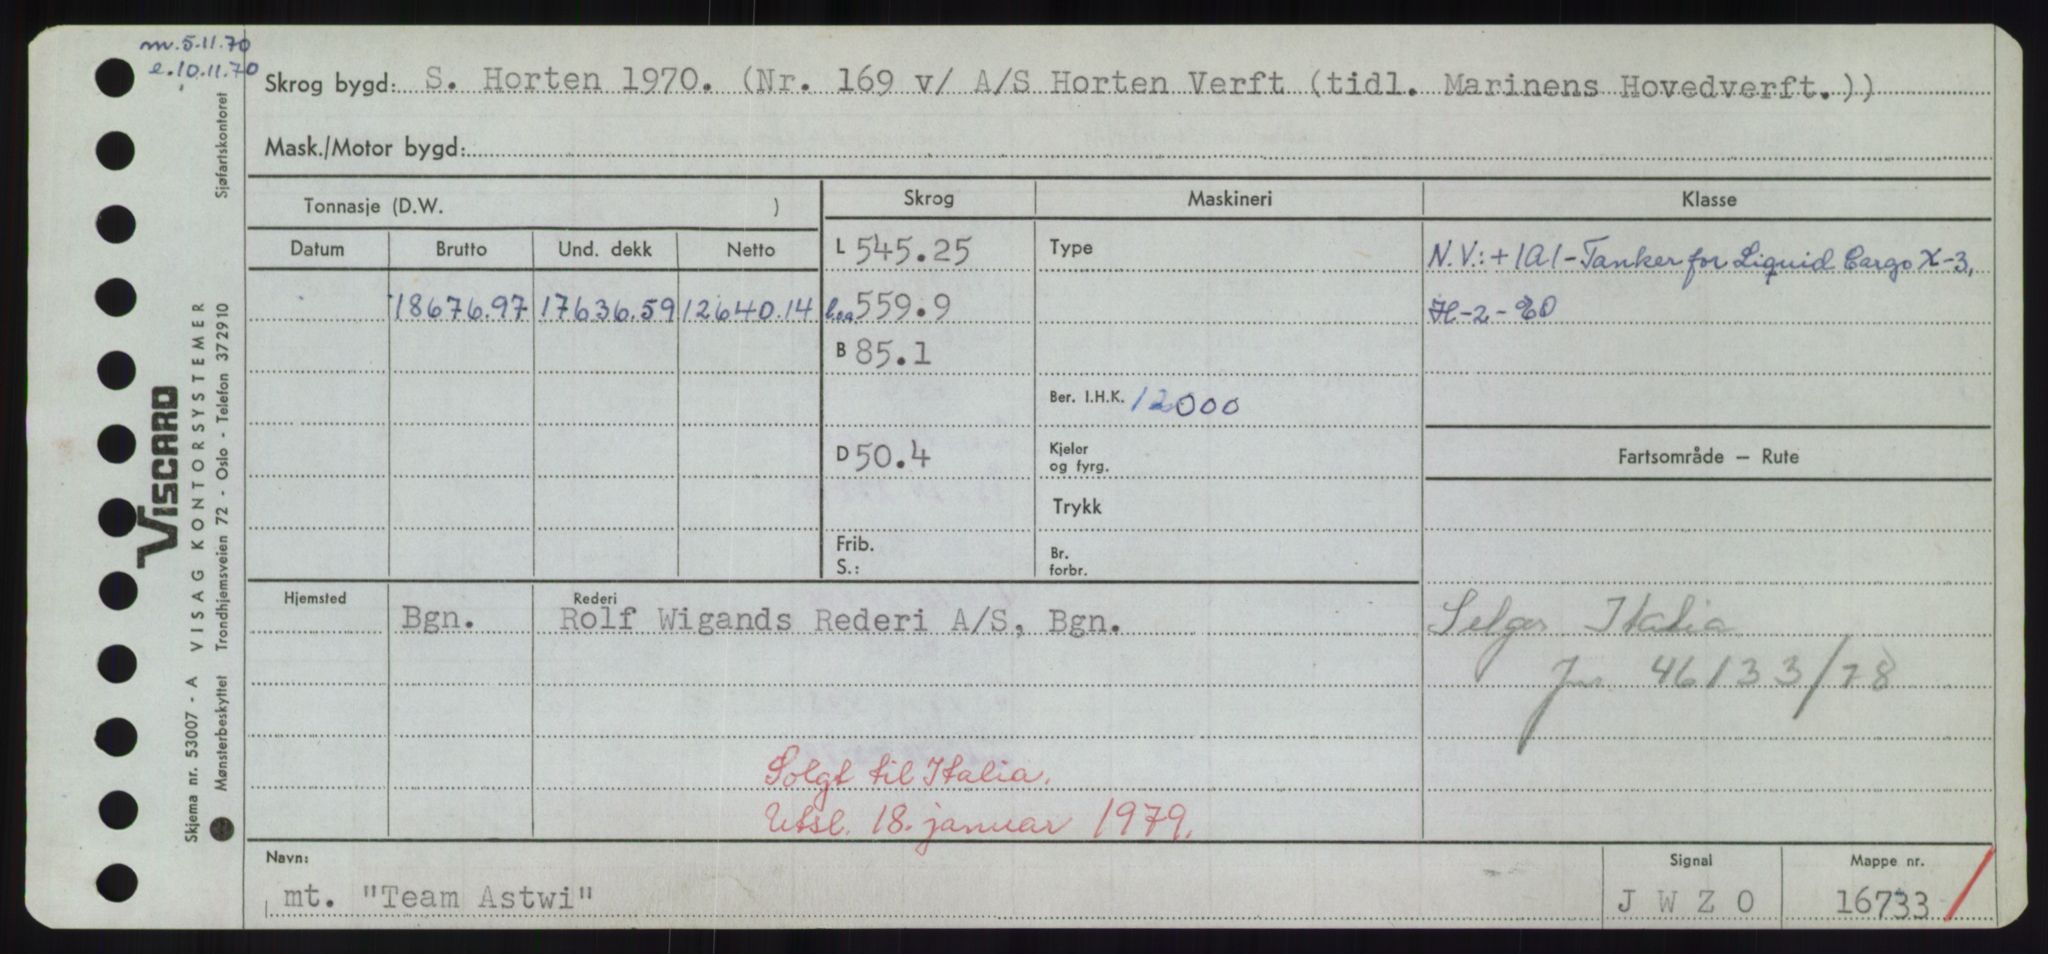 m. 5.11.70
e. 10.11.70
Skrog bygd: S. Horten 1970. (Nr. 169 v/ A/S Horten Verft (tidl. Marinens Hovedverft.))
Mask./Motor bygd:
Tonnasje (D.W. )
Skrog
Maskineri
Klasse
Datum
Brutto
Und. dekk
Netto
18676.97 17636.59 12640.14
L 545.25
loa. 559.9
B 85.1
D 50.4
Frib.
S.:
Type
Ber. I.H.K. 12000
Kjeler
og fyrg.
Trykk
Br.
forbr.
N.V.: + 1A1 - Tanker for Liquid Cargo X-3,
H-2-
Fartsområde — Rute
Selges Italia
46133/78
Hjemsted
Bgn.
Rederi
Rolf Wigands Rederi A/S, Bgn.
Solgt til Italia.
Utsl. 18. januar 1979.
Navn:
mt. "Team Astwi"
Signal
J W Z O
Mappe nr.
16733
VISCARD
Skjema nr. 53007 - A VISAG KONTORSYSTEMER
Mønsterbeskyttet Trondhjemsveien 72 - Oslo - Telefon 372910
Sjøfartskontoret